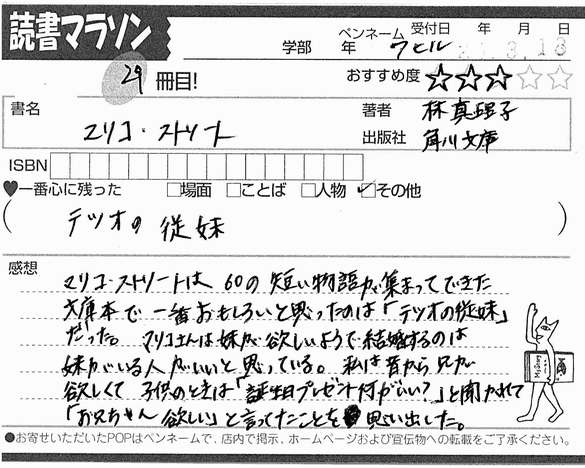 読書マラソン
学部 年 ペンネーム アヒル 受付日 年 月 日
29 冊目!
おすすめ度 ★★★☆☆
書名 マリコ・ストリート
著者 林真理子
出版社 角川文庫
ISBN
♥一番心に残った □場面 □ことば □人物 ☑その他
(テツオの従妹)
感想
マリコ・ストリートは 60の 短い物語が集まってできた
文庫本で一番おもしろいと思ったのは「テツオの従妹」
だった。 マリコさんは妹が欲しいようで結婚するのは
妹がいる人がいいと思っている。私は昔から兄が
欲しくて子供のときは「誕生日プレゼント何がいい?」と聞かれて
「お兄ちゃん欲しい」と言ってたことを思い出した。
●お寄せいただいたPOPはペンネームで、店内で掲示、ホームページおよび宣伝物への転載をご了承ください。